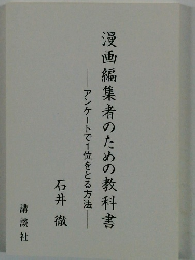 漫画編集者のための教科書
──アンケートで1位をとる方法──
石井 徹
講談社